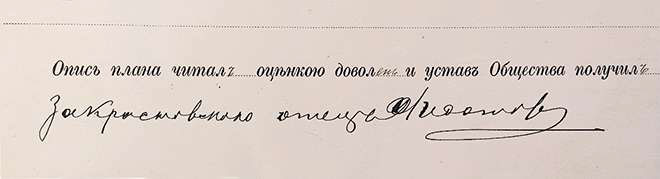 Опись плана читалъ оцѣнкою доволенъ и уставъ Общества получилъ
За Крастовского отец